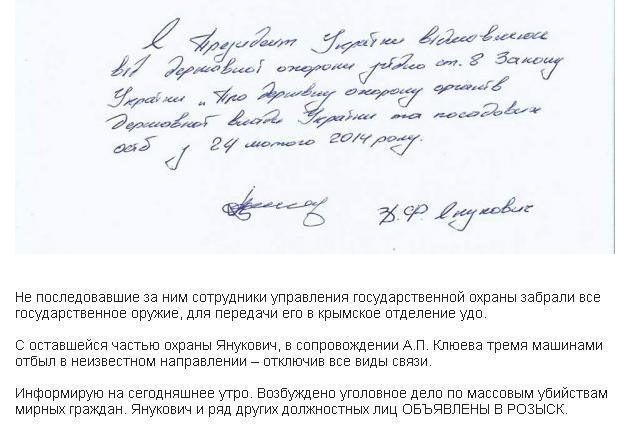 Я Президент України відмовляюся
від державної охорони згідно ст. 8 Закону
України „Про державну охорону органів
державної влади України та посадових
осіб з 24 лютого 2014 року.
Д.Ф. Янукович
Не последовавшие за ним сотрудники управления государственной охраны забрали все
государственное оружие, для передачи его в крымское отделение удо.
С оставшейся частью охраны Янукович, в сопровождении А.П. Клюева тремя машинами
отбыл в неизвестном направлении – отключив все виды связи.
Информирую на сегодняшнее утро. Возбуждено уголовное дело по массовым убийствам
мирных граждан. Янукович и ряд других должностных лиц ОБЪЯВЛЕНЫ В РОЗЫСК.